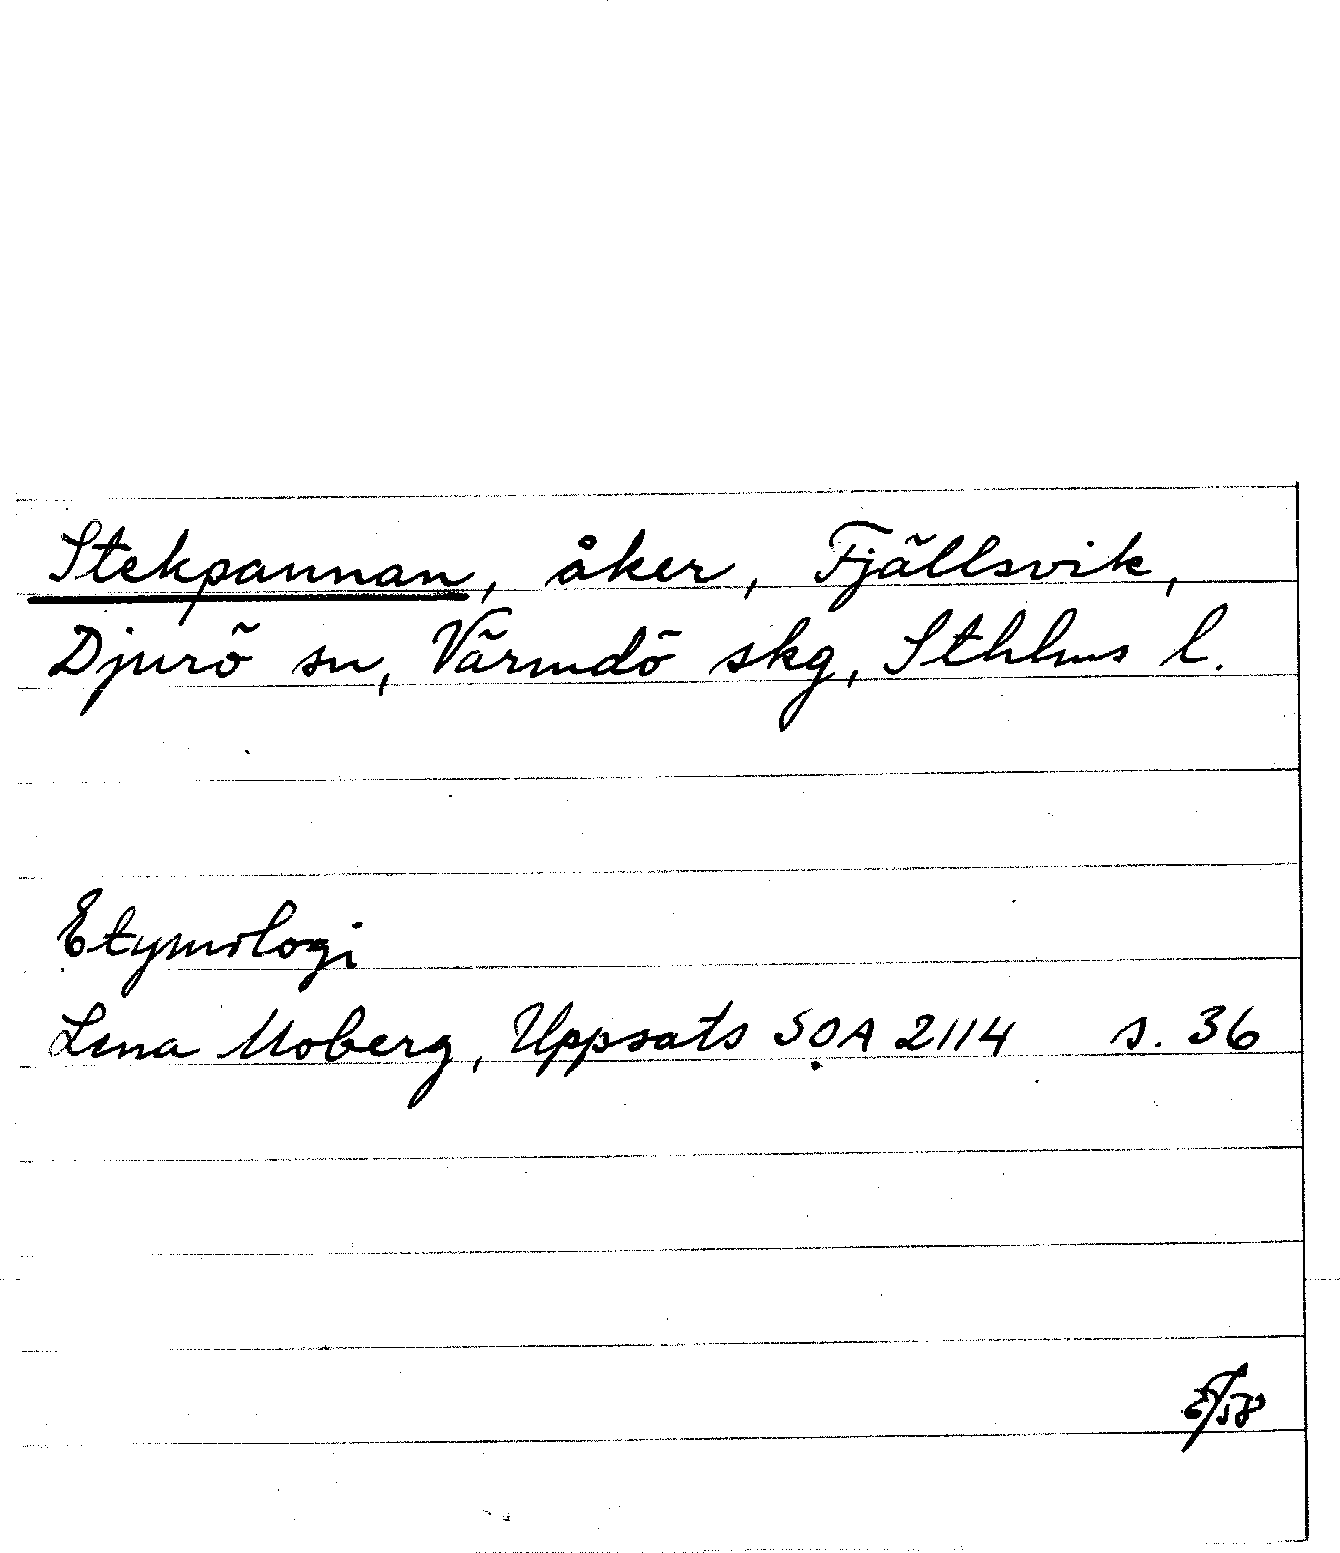 Stekpannan, åker, Fjällsvik,
Djurö sn, Värmdö skg, Sthlms l.
Etymologi
Lena Moberg, Uppsats SOA 2114 s. 36